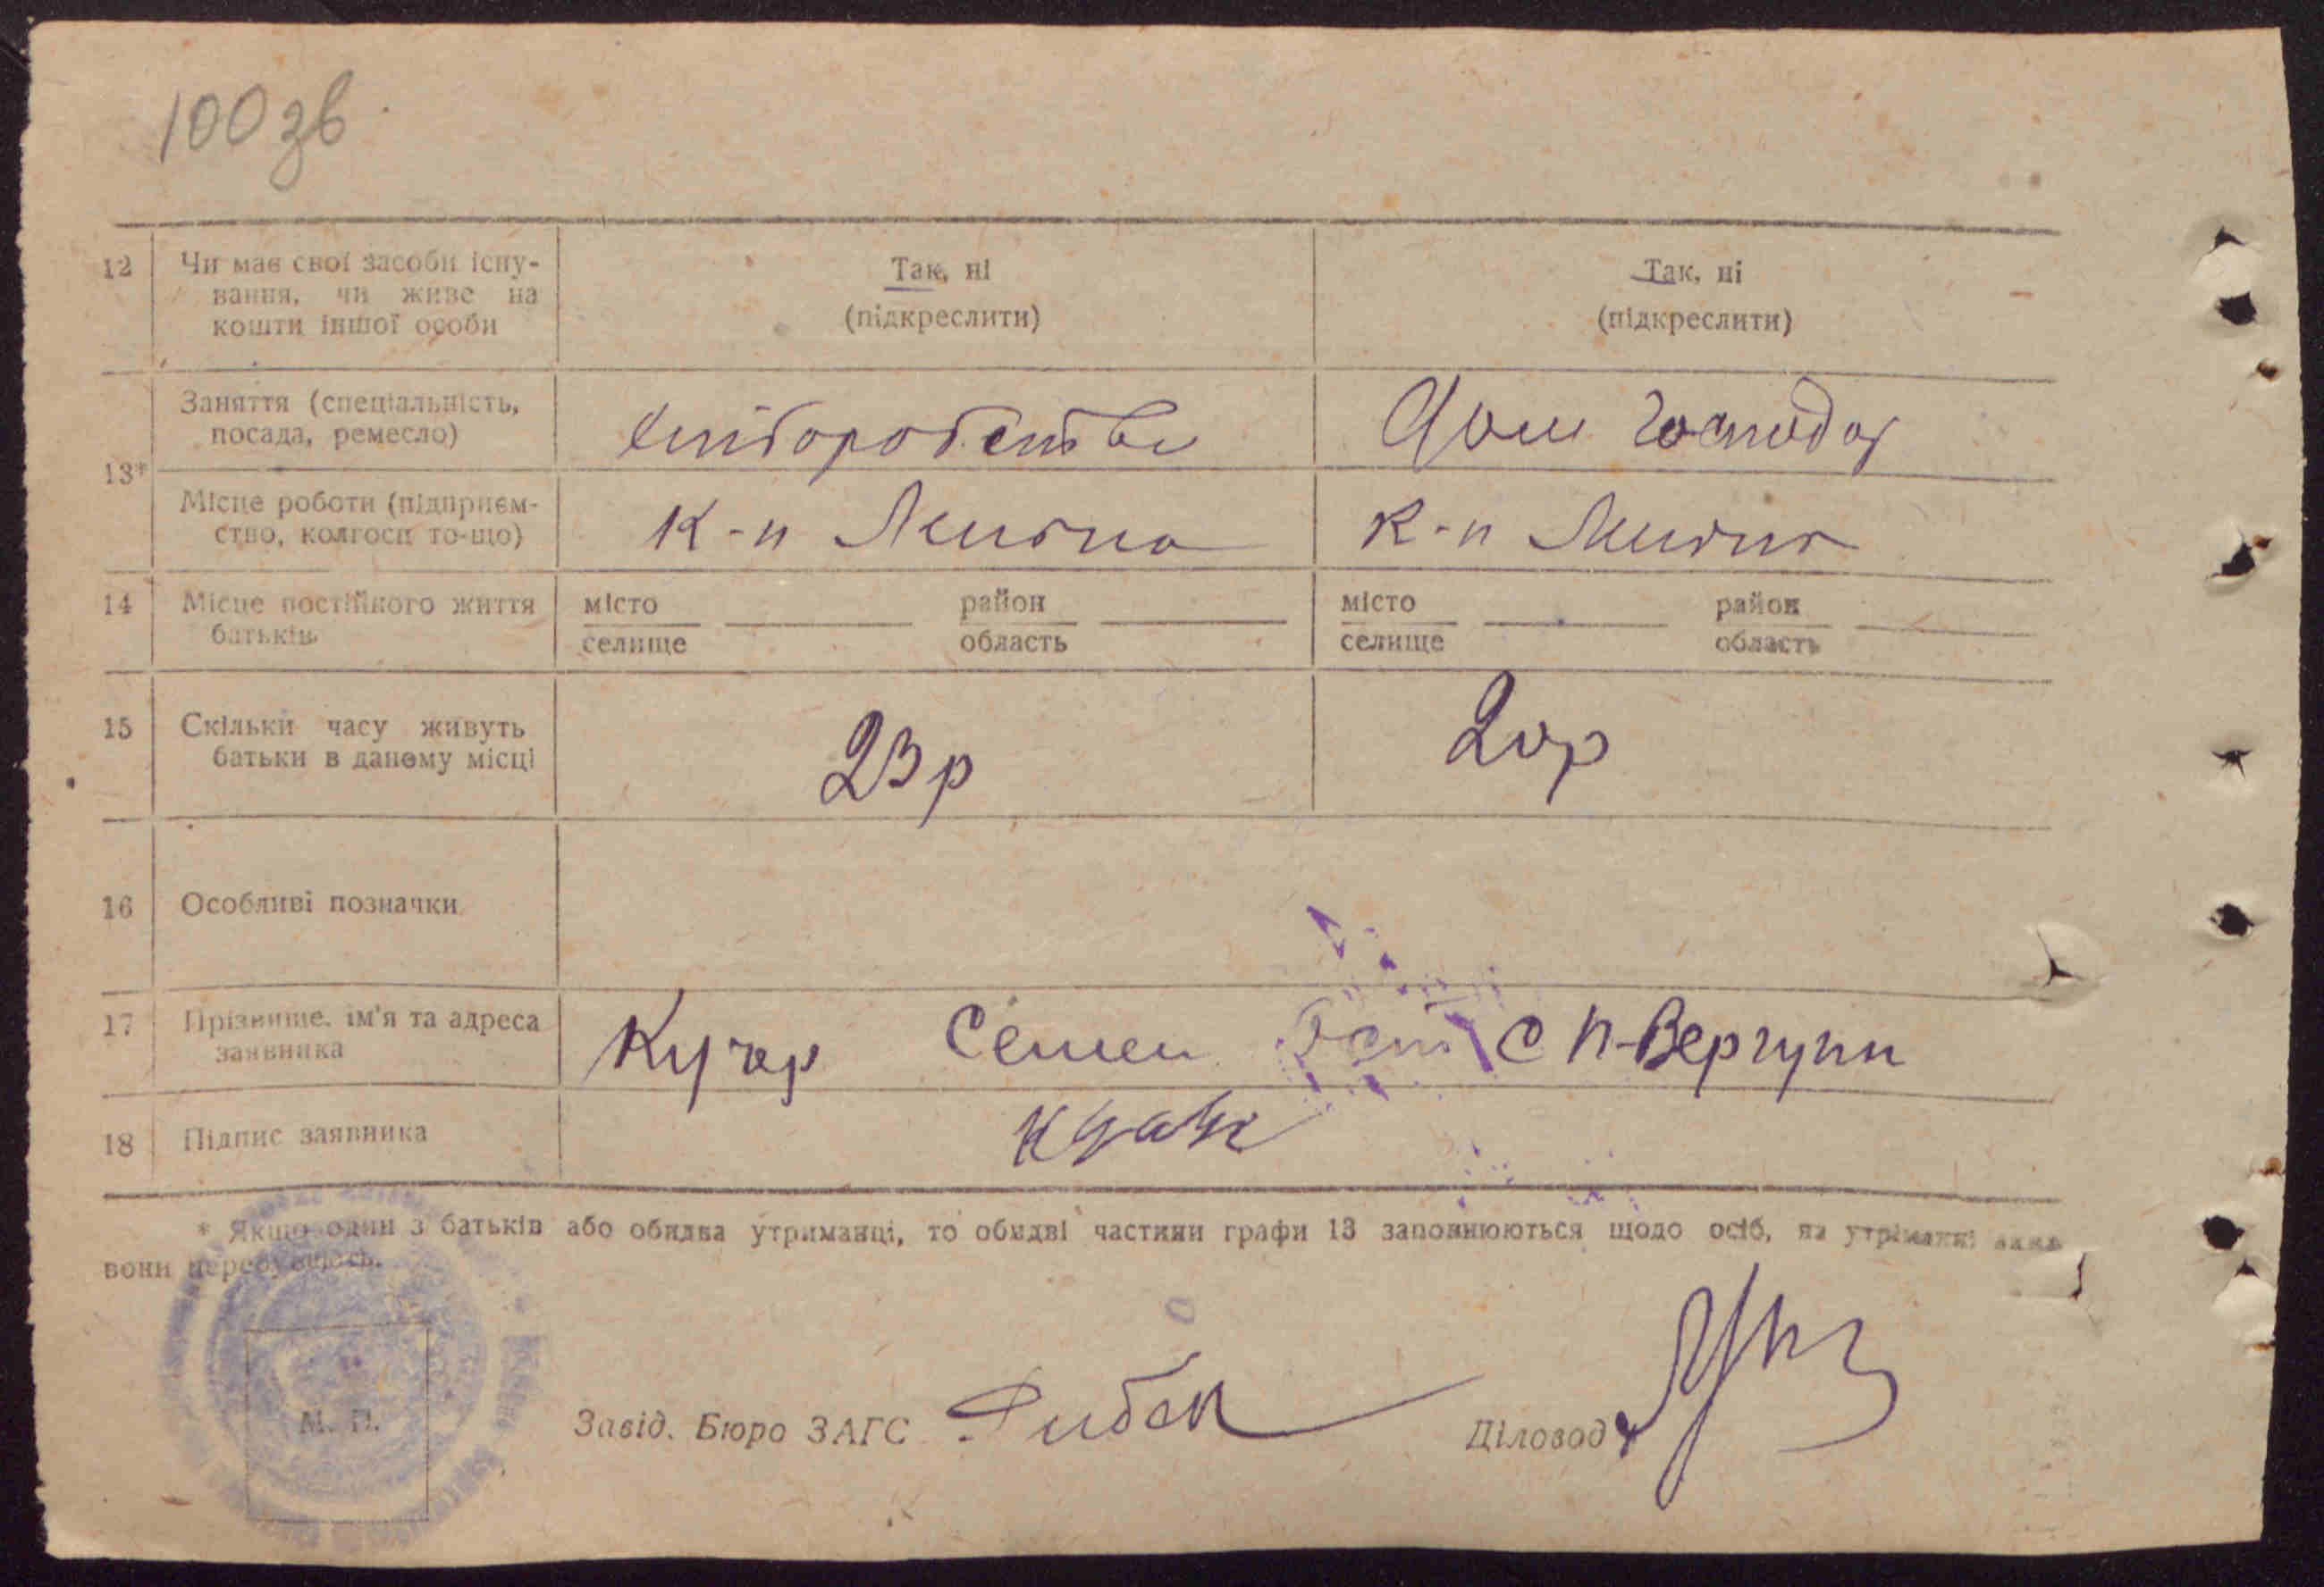 100 зв.
12 Чи має свої засоби існу-
вання, чи живе на
кошти іншої особи
Так, ні
(підкреслити)
Так, ні
(підкреслити)
13*
Заняття (спеціальність,
посада, ремесло)
Дом господар
Місце роботи (підприєм-
ство, колгосп то-що)
к-п
к-п
14 Місце постійного життя
батьків
місто район
селище область
місто район
селище область
15 Скільки часу живуть
батьки в даному місці
23р
20р
16 Особливі позначки
17 Прізвище, ім'я та адреса
заявника
Кучер Семен с П-Вергуни
18 Підпис заявника
* Якщо один з батьків або обидва утриманці, то обидві частини графи 13 заповнюються щодо осіб, на утриманні яких
вони перебувають.
М. П.
Завід. Бюро ЗАГС Рибак
Діловод